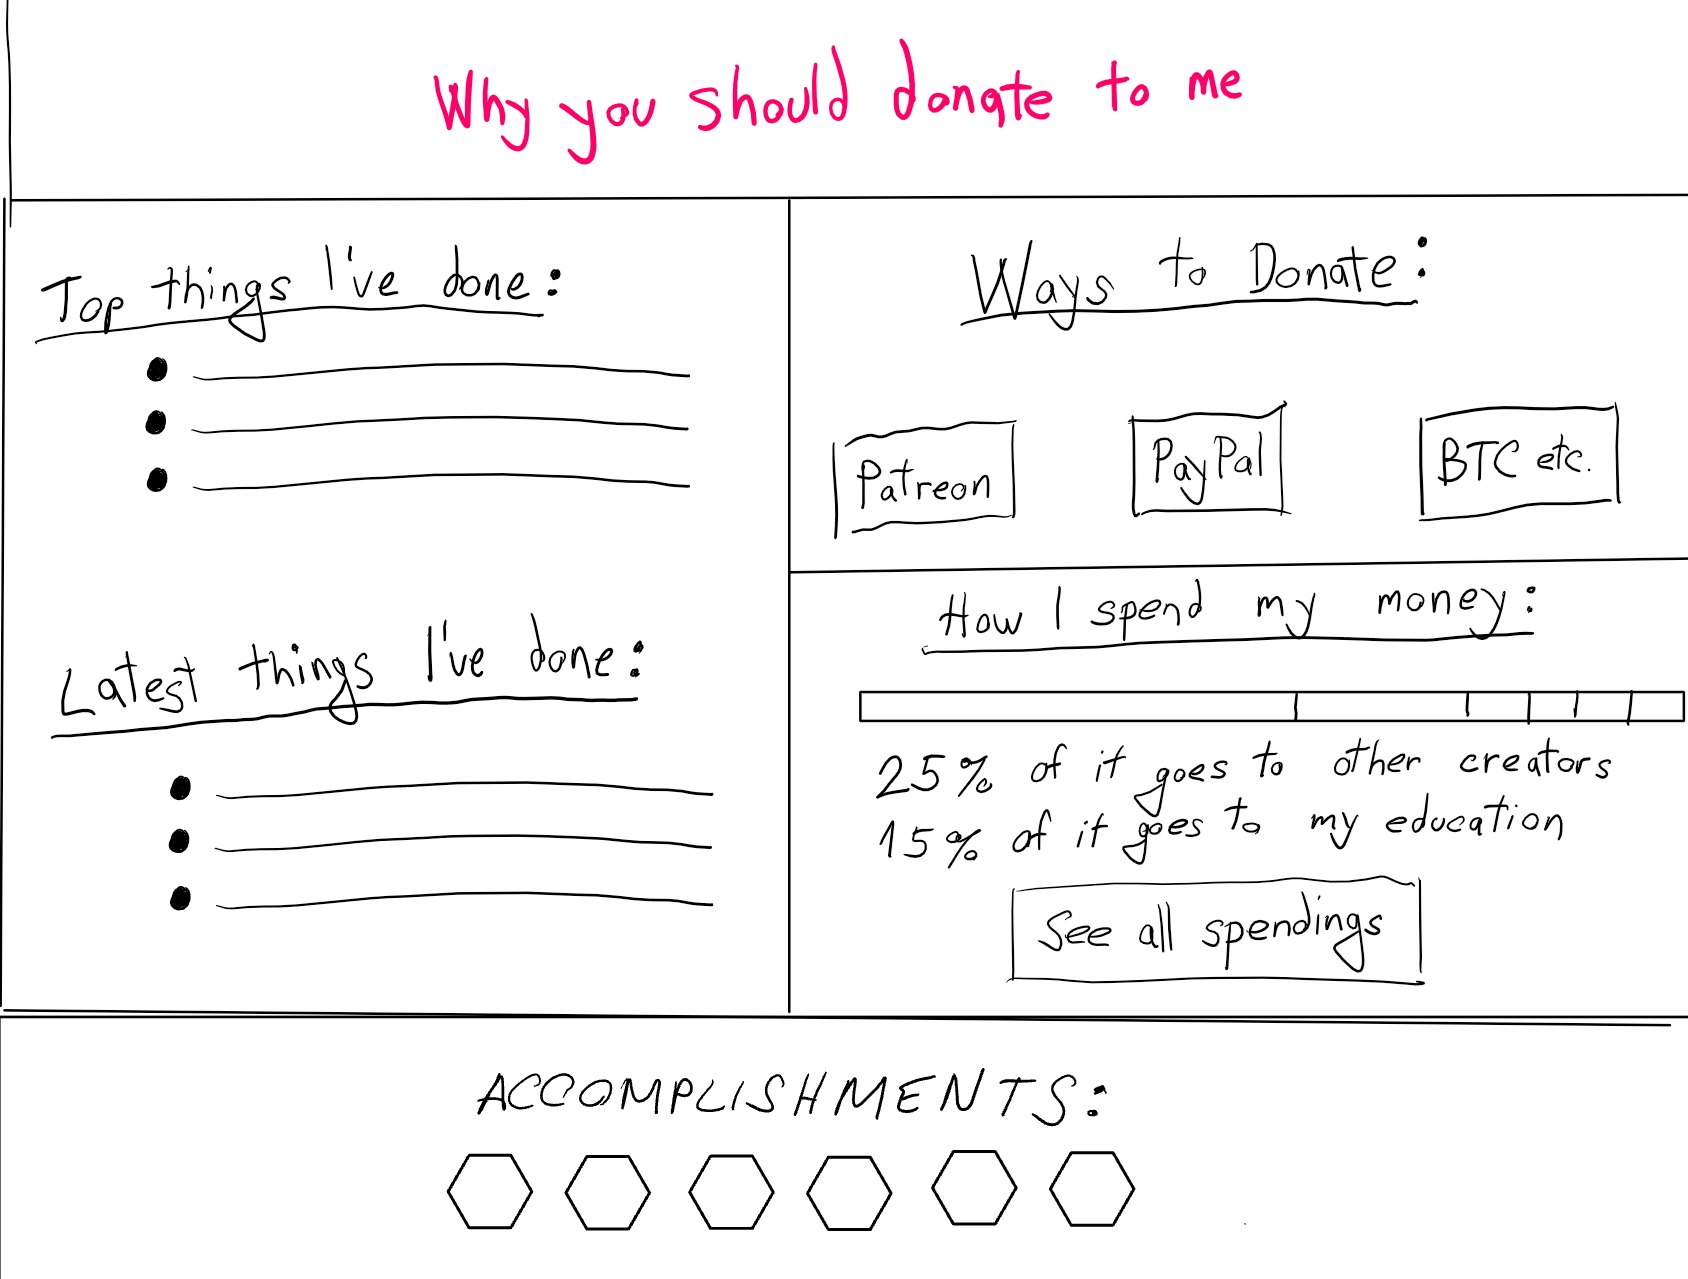 Why you should donate to me
Top things I've done:
Latest things I've done:
Ways to Donate:
Patreon
PayPal
BTC etc.
How I spend my money:
25% of it goes to other creators
15% of it goes to my education
See all spendings
ACCOMPLISHMENTS: